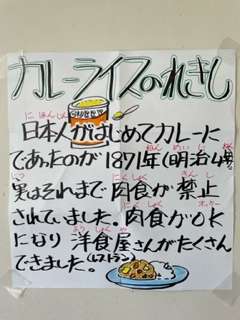 カレーライスのれきし
にほんじん
日本人がはじめてカレーに
ねん めい じ
であったのが1871年(明治4年)
じつ にくしょく きん し
実はそれまで肉食が禁止
にくしょく オッケー
されていました。肉食がOK
ようしょくや
になり洋食屋さんがたくさん
できました。(レストラン)